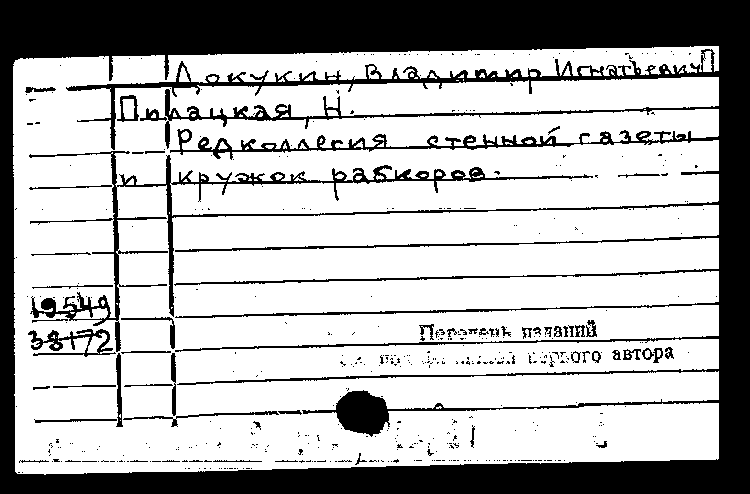 Докукин, Владимир Игнатьевич
Пилацкая, Н.
Редколлегия стенной газеты
и кружок рабкоров.
19549
38172
Перечень изданий
см. под фамилией первого автора